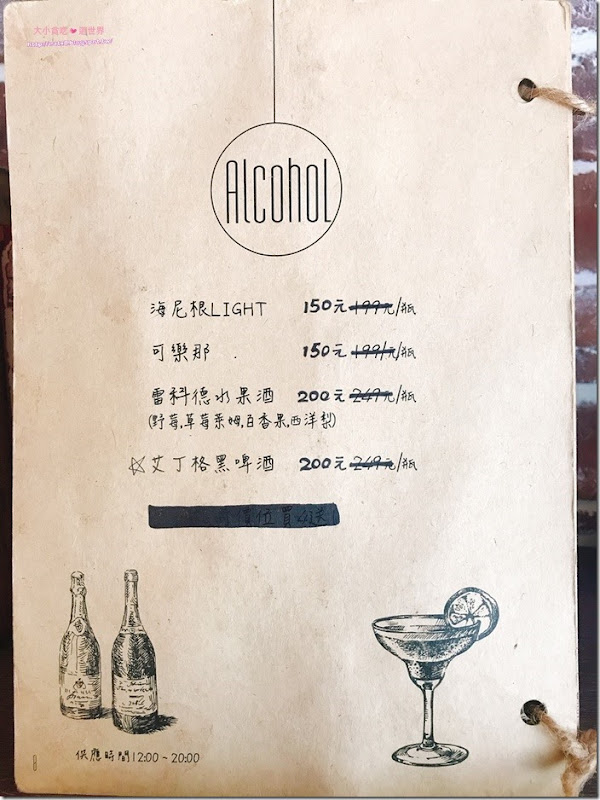 大小寶吧❤遊世界
Alcohol
海尼根LIGHT 150元 199元/瓶
可樂那 150元 199元/瓶
雷科德水果酒 200元 249元/瓶
(野莓,草莓萊姆,百香果,西洋梨)
☆艾丁格黑啤酒 200元 249元/瓶
價位買4送1
供應時間12:00~20:00